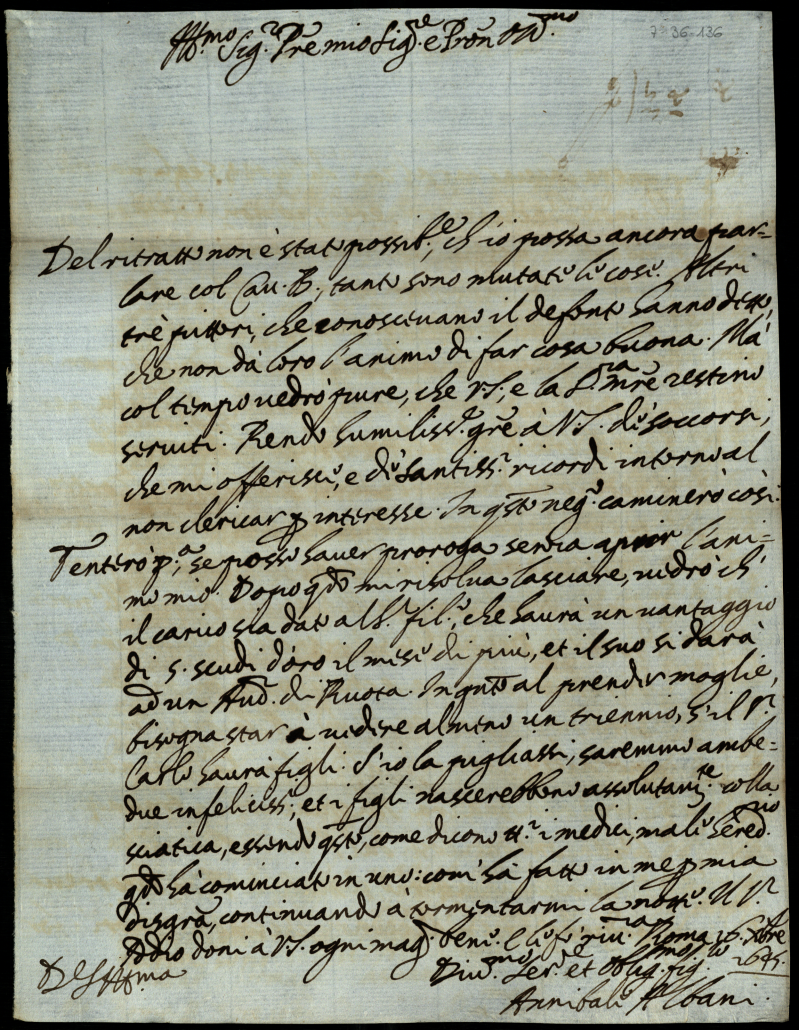 Ill.mo Sig.r Pre mio Sig.re e Pron Oss.mo
7-36-136
Del ritratto non è stato possib.le, ch'io possa ancora par=
lare col Cav. B.; tanto sono mutate le cose. Altri
trè pittori, che conoscevano il defonto hanno detto,
che non dà loro l'animo di far cosa buona. Mà
col tempo vedrò pure, che VS., e la S.ra mre restino
serviti. Rendo humiliss.e gre à VS. de' soccorsi,
che mi offerisce, e de' santiss.i ricordi intorno al
non clericar p interesse. In qsto neg.o caminerò così.
Tenterò p.a, se posso haver proroga senza aprir l'ani=
mo mio. Dopo qdo mi risolva lasciare, vedrò ch'
il carico sia dato al S.r fil.o, che haurà un vantaggio
di 5. scudi d'oro il mese di più, et il suo si darà
ad un Aud. di Ruota. In qnto al prender moglie,
bisogna star à vedere almeno un triennio, s'il S.r
Carlo haurà figli. S'io la pigliassi, saremmo ambe=
due infelicis.i, et i figli nascerebbono assolutam.te colla
sciatica, essendo qsto, come dicono tt.i i medici, male hered.rio
qdo hà cominciato in uno: com'hà fatto in me p mia
disgra, continuando à tormentarmi la notte. Il S.r
Iddio doni à VS. ogni mag. bene. E le fò riv.za Roma 26 Xbre
1645.
Di VS Ill.ma
Div.mo Ser.re et oblig.mo fig.lo
Annibale Albani.